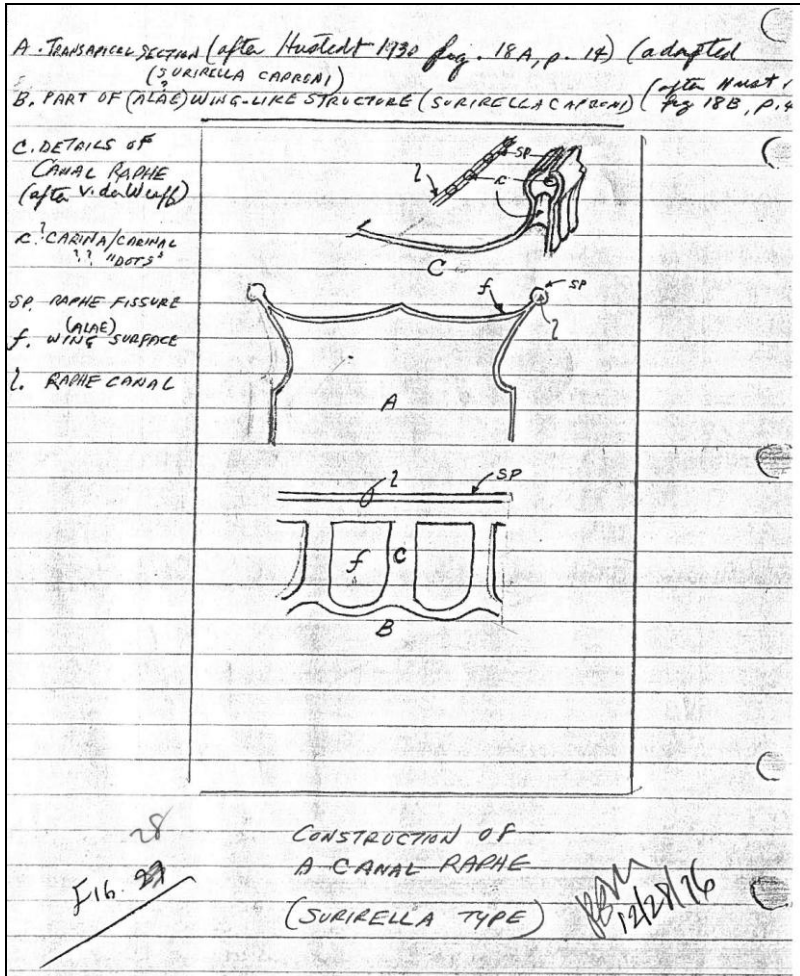 A. TRANSAPICAL SECTION (after Hustedt 1930 fig. 18A, p. 14) (adapted
(SURIRELLA CAPRONI)
B. PART OF (ALAE) WING-LIKE STRUCTURE (SURIRELLA CAPRONI) (after Hust
fig 18B, p.
C. DETAILS OF
CANAL RAPHE
(after V. der Werff)
c. ? CARINA/CARINAL
?? "DOTS"
SP. RAPHE FISSURE
(ALAE)
f. WING SURFACE
l. RAPHE CANAL
SP
l
c
C
f
SP
l
A
l
SP
f
C
B
28
FIG.
CONSTRUCTION OF
A CANAL RAPHE
(SURIRELLA TYPE)
12/28/76